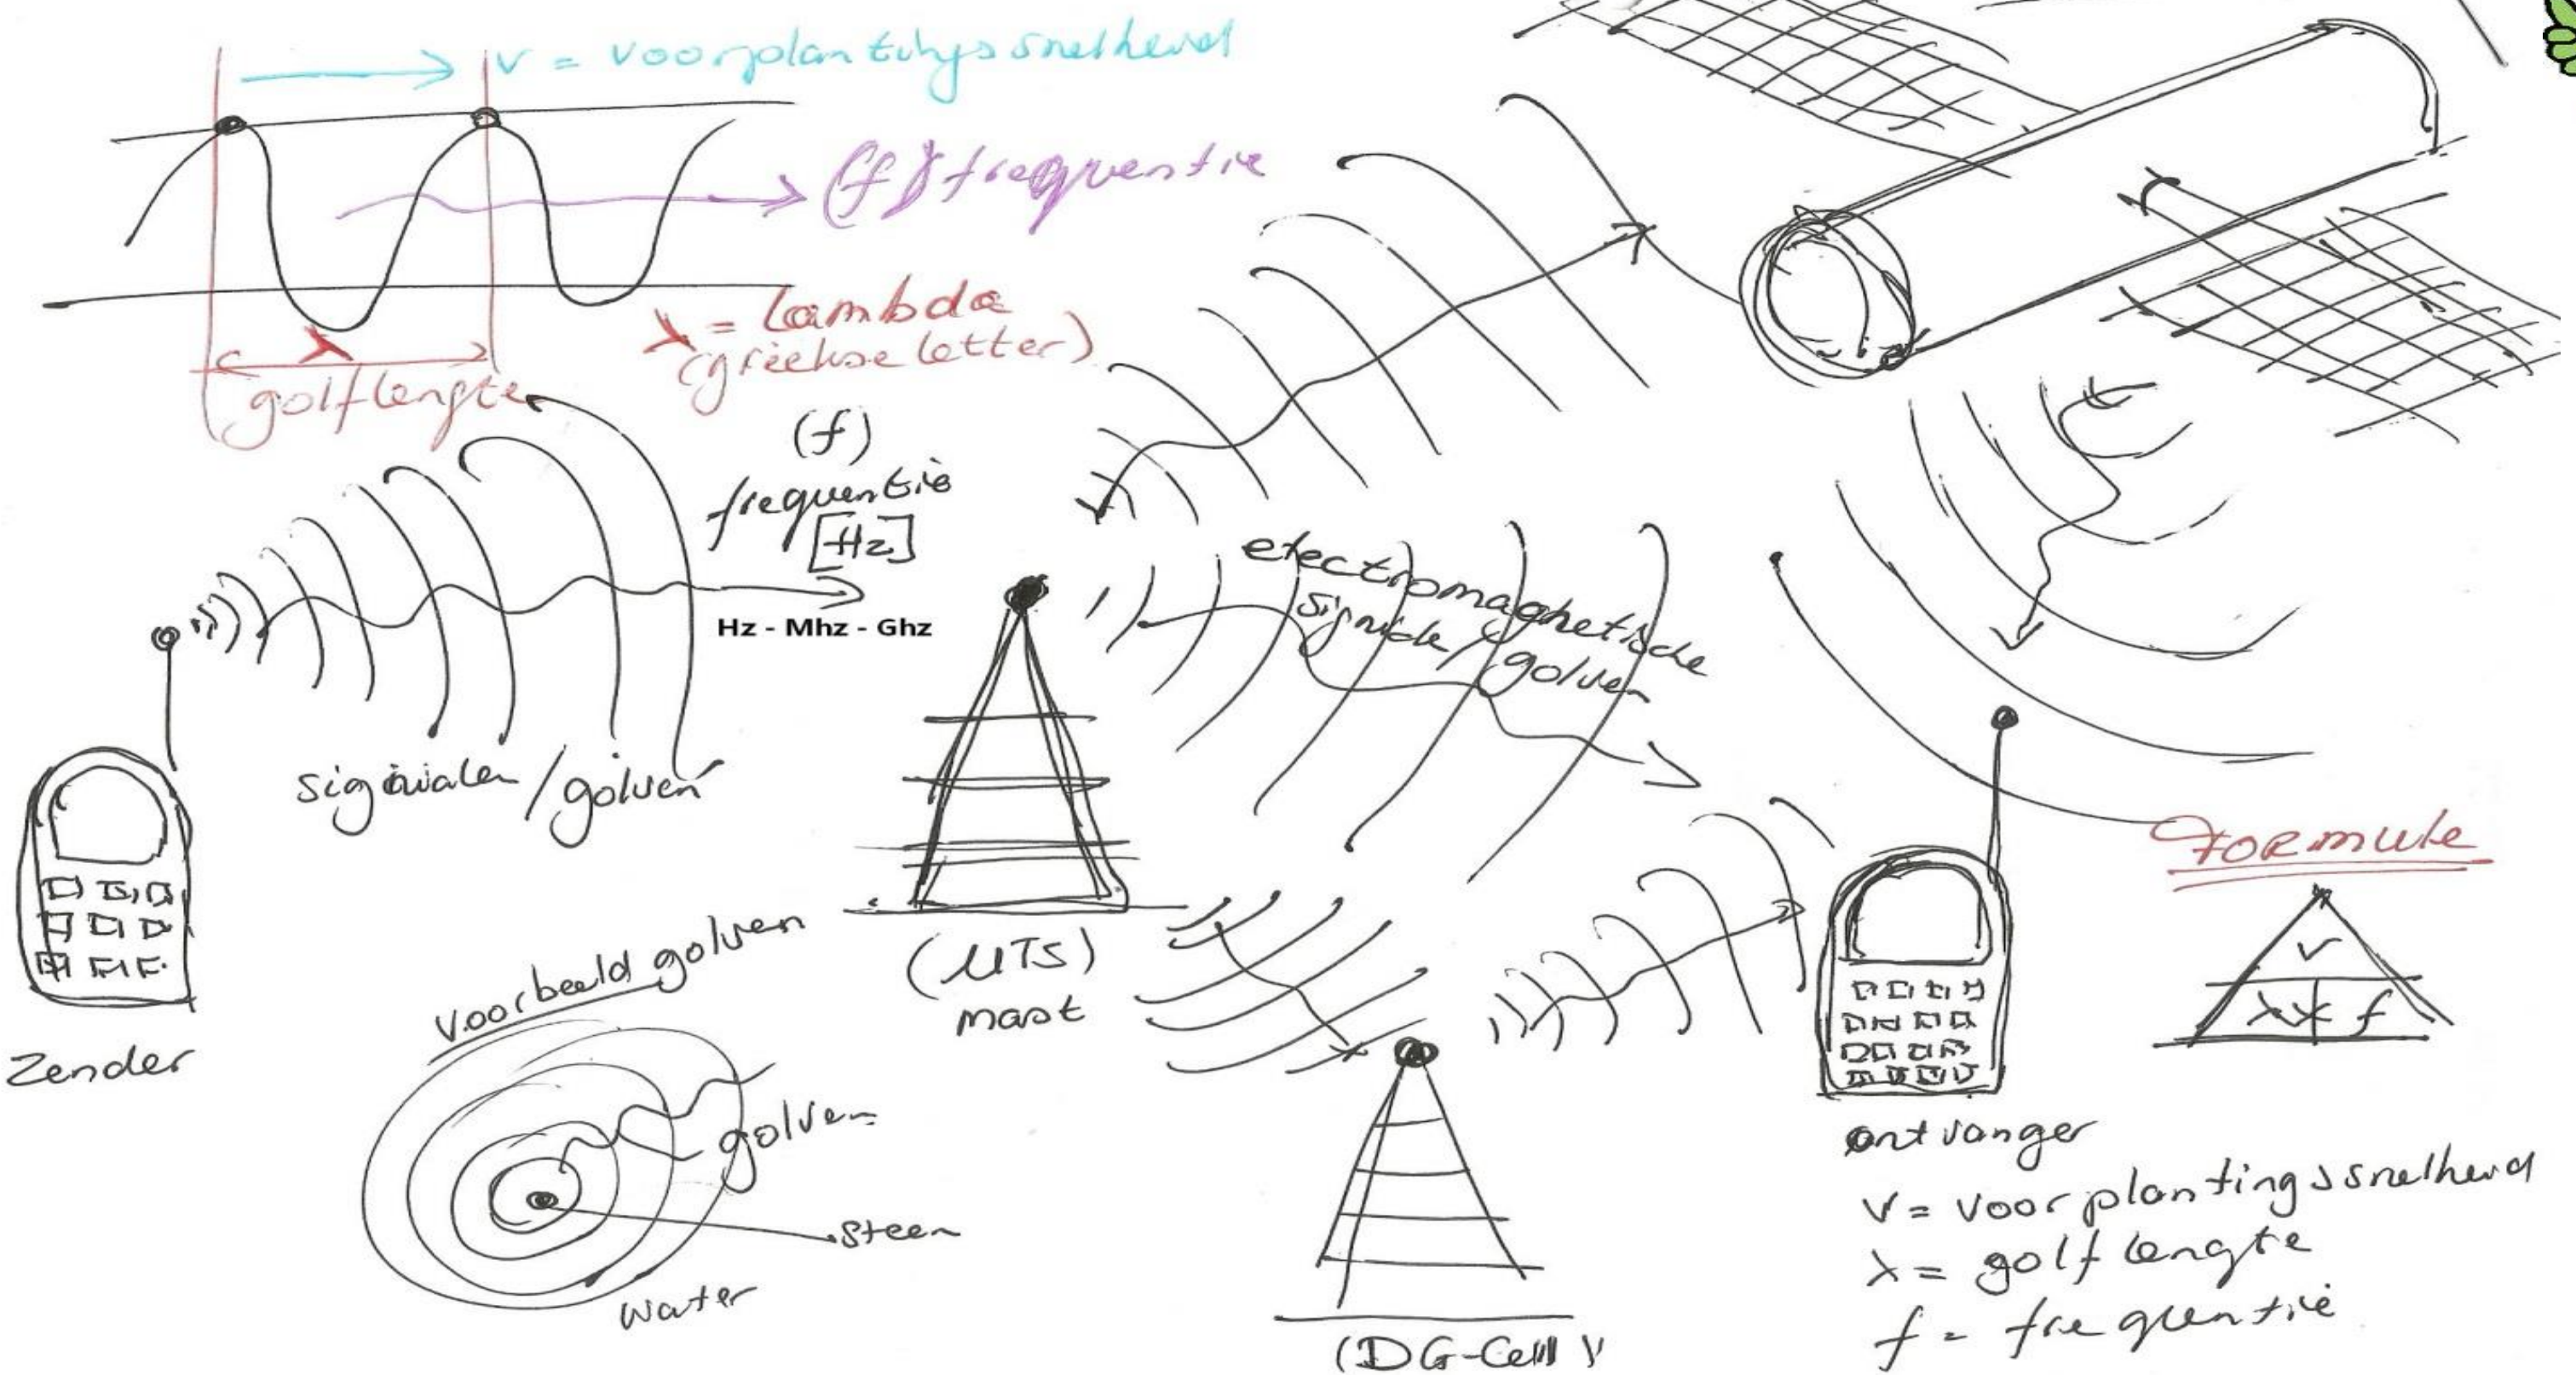 v = voorplantingssnelheid
(f) frequentie
λ = Lambda
(griekse letter)
λ
golflengte
(f)
frequentie
[Hz]
Hz - Mhz - Ghz
electromagnetische
signalen / golven
signialen / golven
Formule
v
λ * f
Zender
(UTS)
mast
Voorbeeld golven
golven
steen
water
(DG-Cell)
ontvanger
v = voorplantingssnelheid
λ = golf lengte
f = frequentie